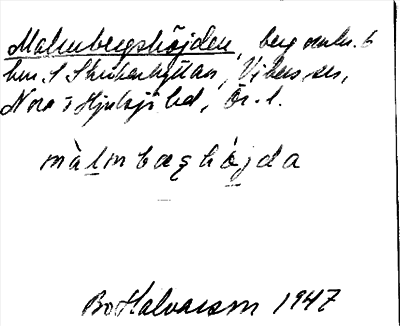 Malmbergshöjden, berg omkr. 6
hm. S Skrikarhyttan, Vikers sn,
Nora o Hjulsjö bd, Ör. l.
màlmbæʂhö̀jda
Bo Halvarsson 1947